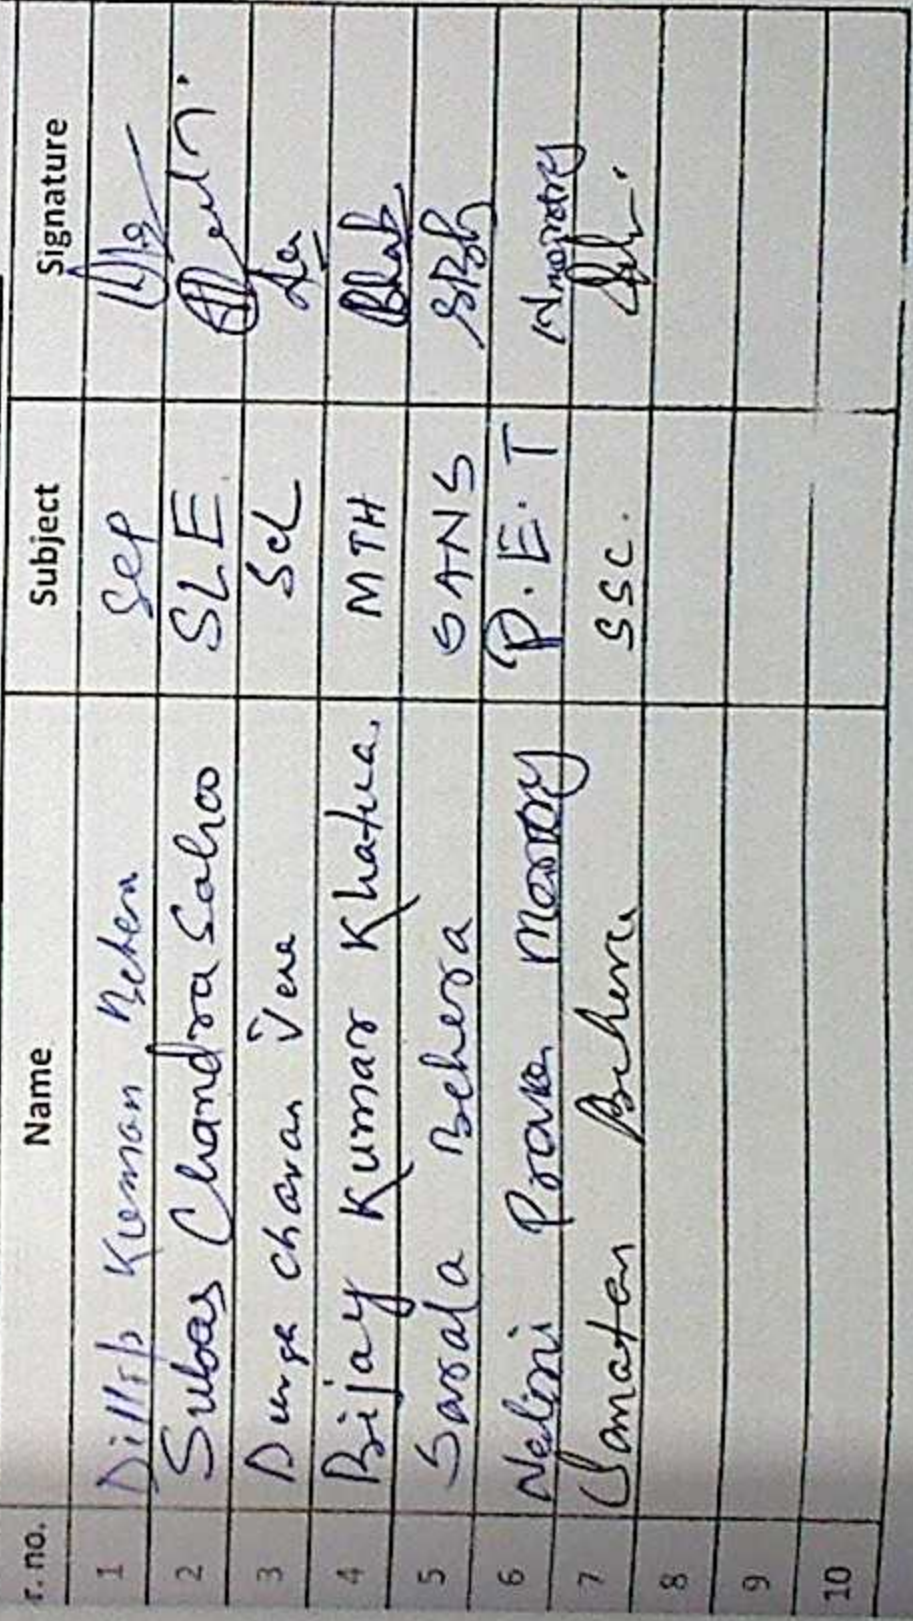 r. no. Name Subject Signature
1 Dillip Kumar Behera
2 Subas Chandra Sahoo SLE
3 Durga Charan Jena Scl
4 Bijay Kumar Khatua. MTH
5 Sarala Behera SANS
6 Nalini Prava P.E.T
7 Sanatan Behera SSC.
8
9
10